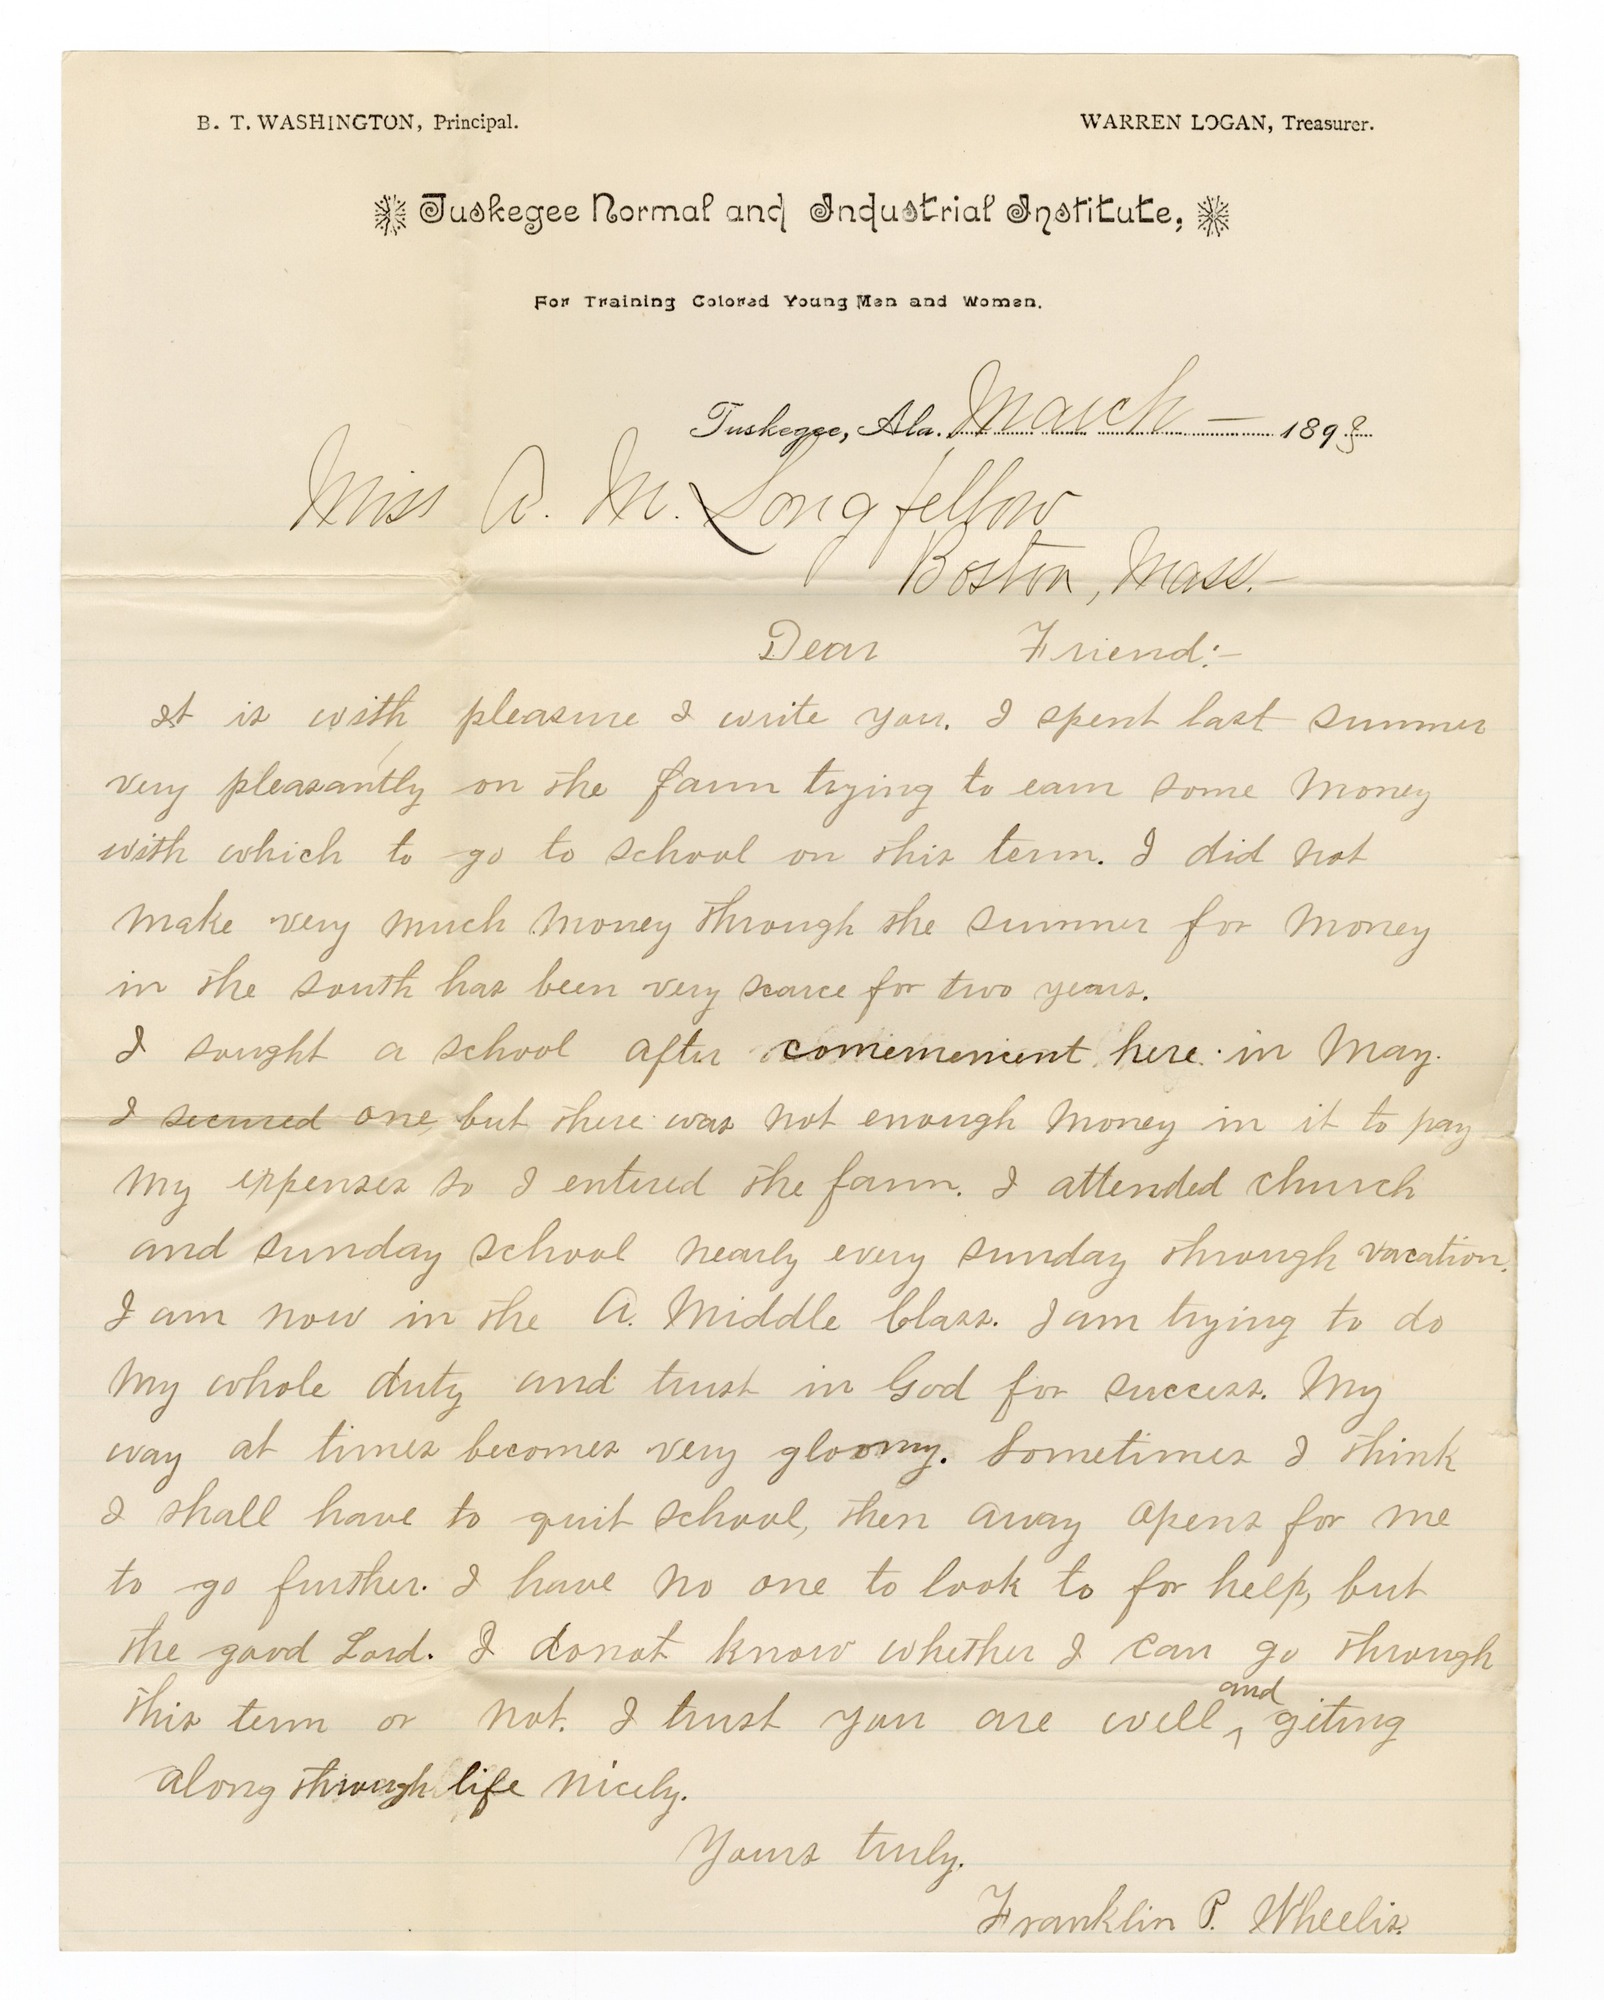 B. T. WASHINGTON, Principal. WARREN LOGAN, Treasurer.
Tuskegee Normal and Industrial Institute,
For Training Colored Young Men and Women.
Tuskegee, Ala. March — 1893
Miss A. M. Longfellow
Boston, Mass.—
Dear Friend:—
It is with pleasure I write you. I spent last summer
very pleasantly on the farm trying to earn some money
with which to go to school on this term. I did not
make very much money through the summer for money
in the south has been very scarce for two years.
I sought a school after comemencent here in May.
I secured one, but there was not enough money in it to pay
my expenses so I entered the farm. I attended church
and sunday school nearly every sunday through vacation.
I am now in the A. Middle Class. I am trying to do
my whole duty and trust in God for success. My
way at times becomes very gloomy. Sometimes I think
I shall have to quit school, then away opens for me
to go further. I have no one to look to for help, but
the good Lord. I donot know whether I can go through
this term or not. I trust you are well ^and giting
along through life nicely.
Yours truly.
Franklin P. Wheelis.